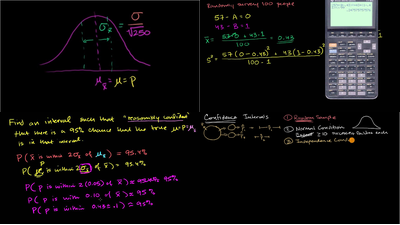 σx̄ = σ/√250
μx̄ = μ = p
Randomly survey 100 people
57 - A = 0
43 - B = 1
x̄ = 57·0 + 43·1 / 100 = 0.43
S² = 57(0-0.43)² + 43(1-0.43)² / 100 - 1
Find an interval such that "reasonably confident"
that there is a 95% chance that the true
is in that interval.
P(x̄ is within 2σx̄ of μx̄) = 95.4%
P(p is within 2σx̄ of x̄) = 95.4%
P(p is within 2(0.05) of x̄) 95%
P(p is with 0.10 of x̄) ≈ 95%
P(p is within 0.43±) ≈ 95%
Confidence Intervals
① Random Sample
② Normal Condition
≥10 successes/failures each
③ Independence Condi